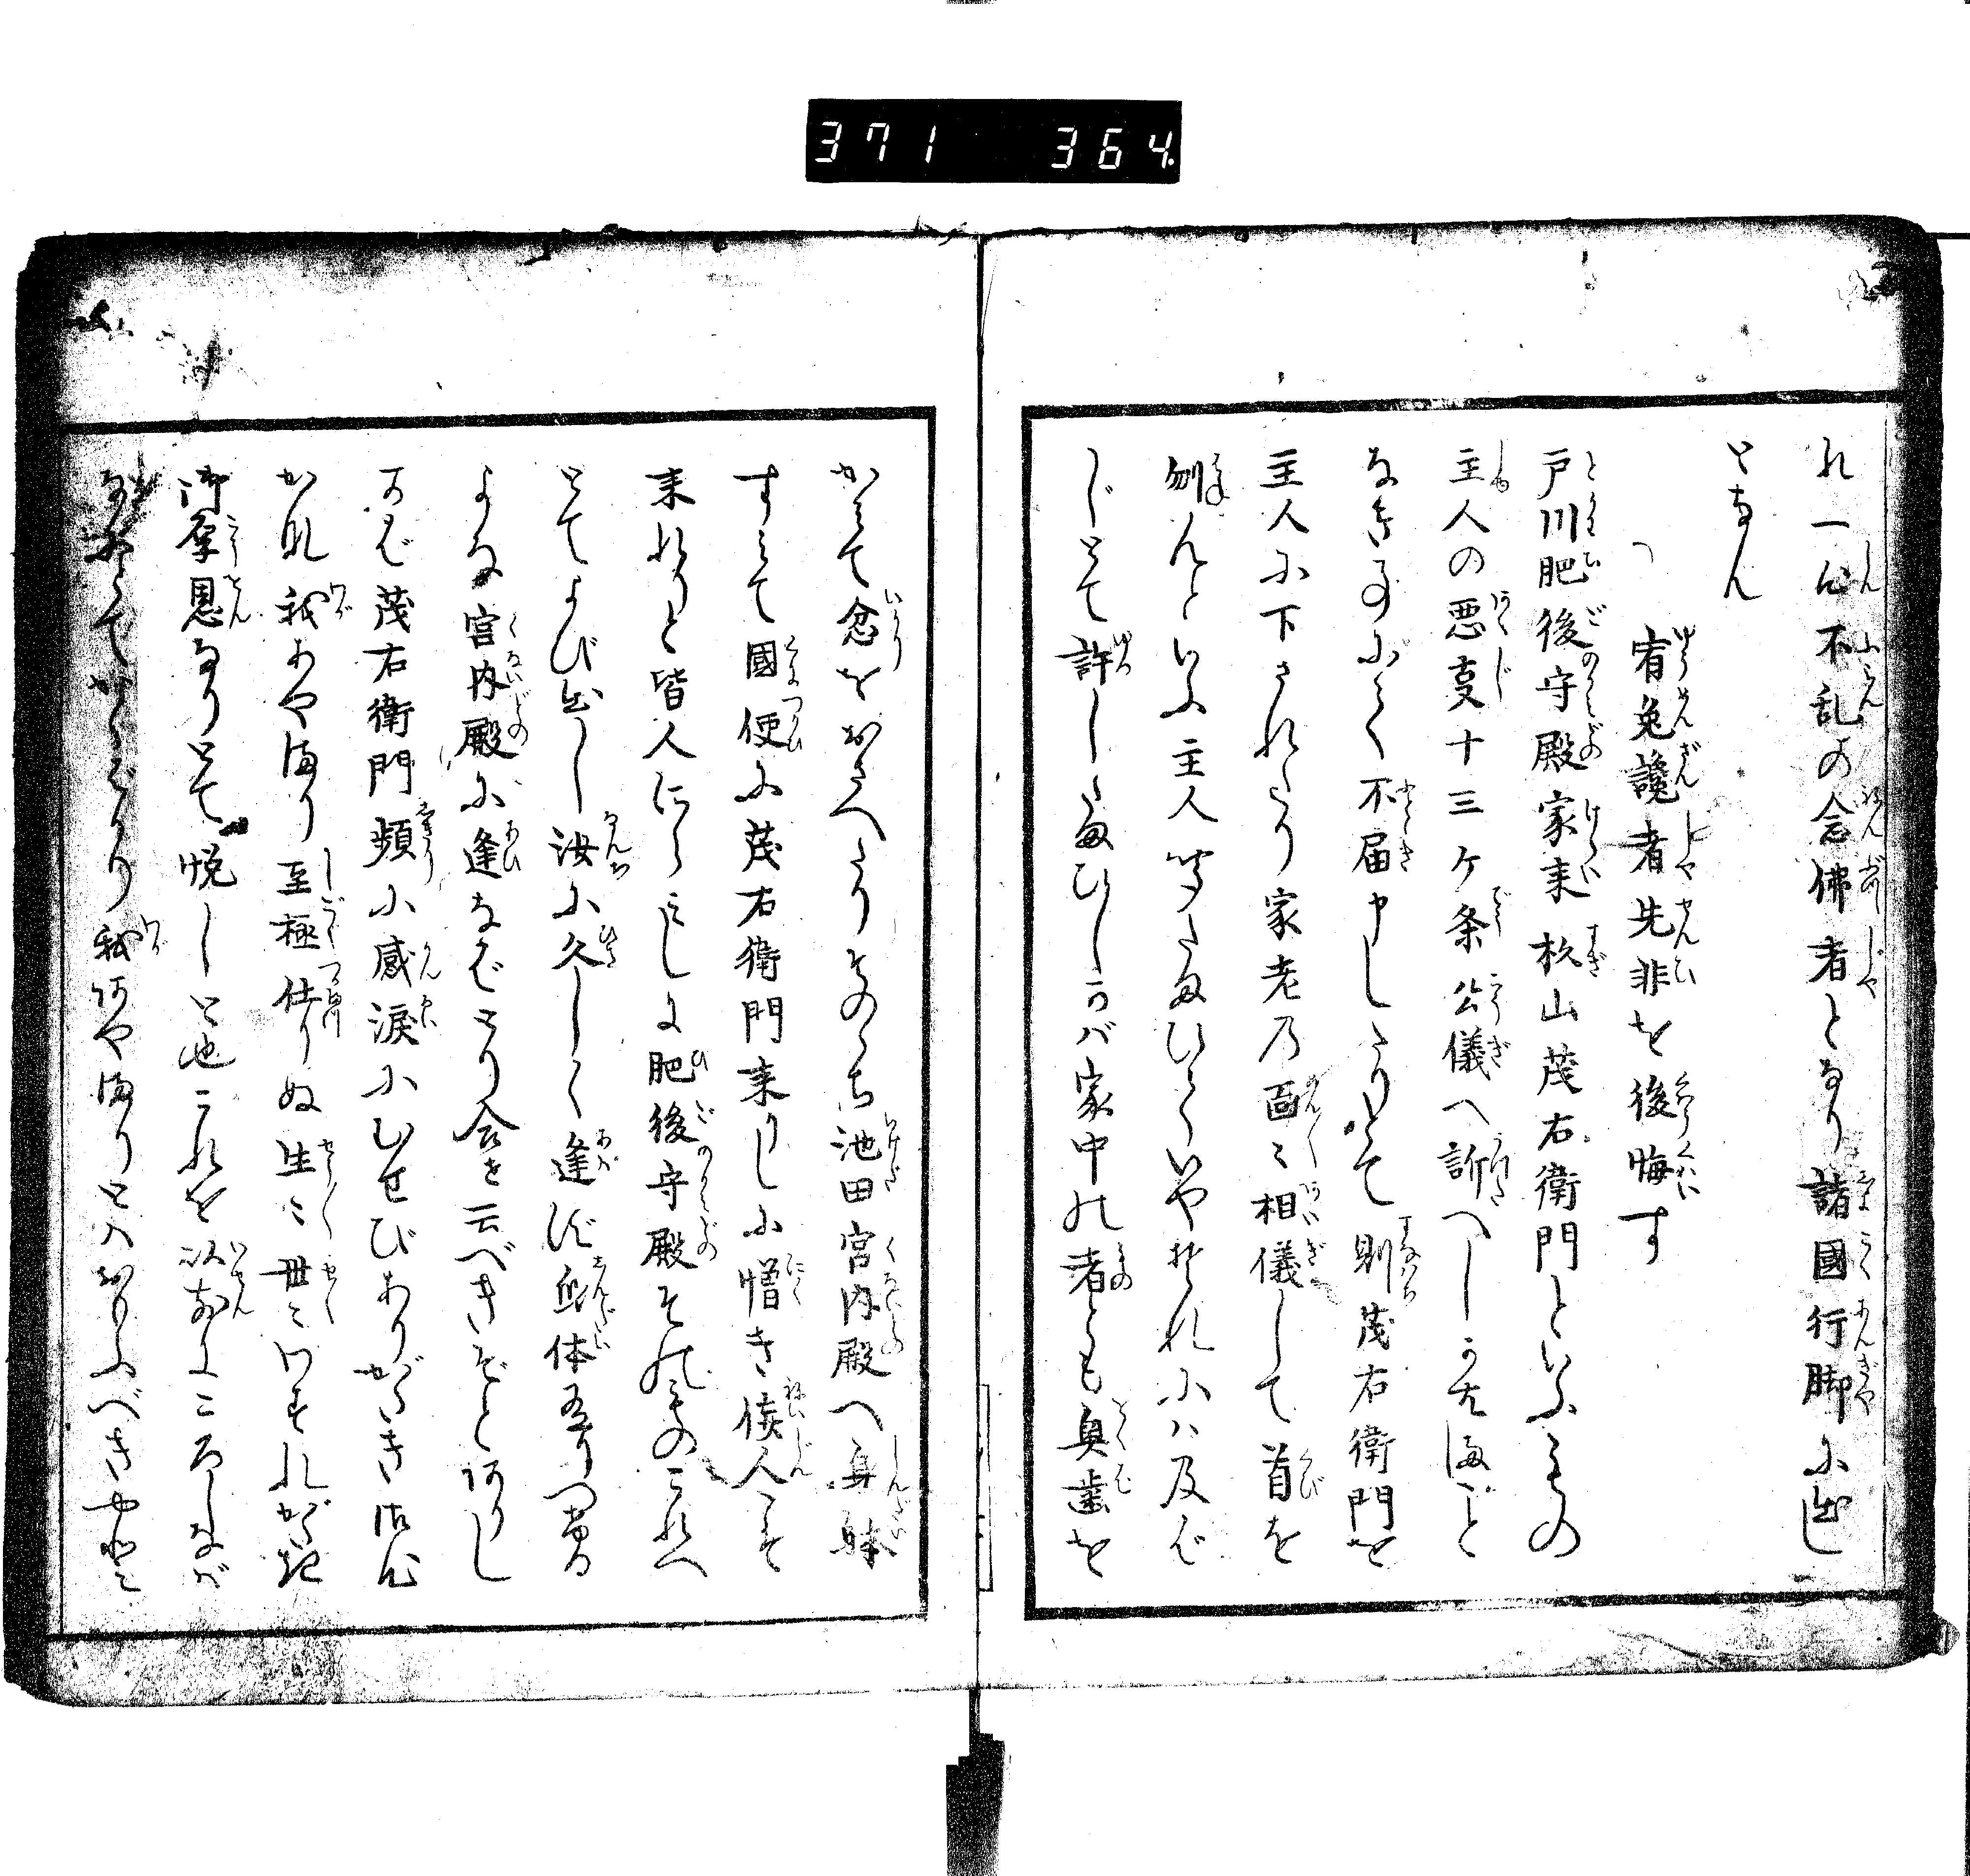 371 364.
れ一心不乱の念佛者となり諸國行脚に出し
となん
宥免讒者先非を後悔す
戸川肥後守殿家来杉山茂右衛門といふもの
主人の悪事十三ケ条公儀へ訴へしかども
なき事ぶく不届申したりとて則茂右衛門を
主人に下されたり家老の面々相儀して首を
刎んといふ主人笑たまひていやそれには及ば
じとて許したまひしかバ家中の者とも奥歯を
かみて忿をおさへたりそののち池田宮内殿へ身躰
すミて國便に茂右衛門来りしに憎き侫人こそ
来れりと皆人にらミしに肥後守殿そのものこれへ
とてよび出し汝に久しく逢ず身体有りつる
よな宮内殿に逢なばとり合を云べきぞとありし
かば茂右衛門頻に感涙にむせびありがたき御心
かな我あやまり至極仕りぬ生々世々わすれがたき
御厚恩なりとて悦しと也これを以前にころしなバ
なにとてかくばかり我あやまりとハおもふべきやと